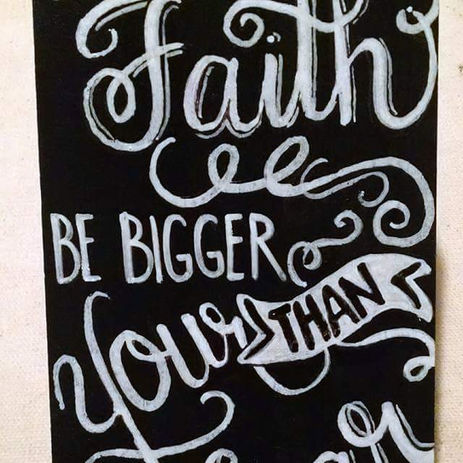 Faith
BE BIGGER
THAN
Your
Fear